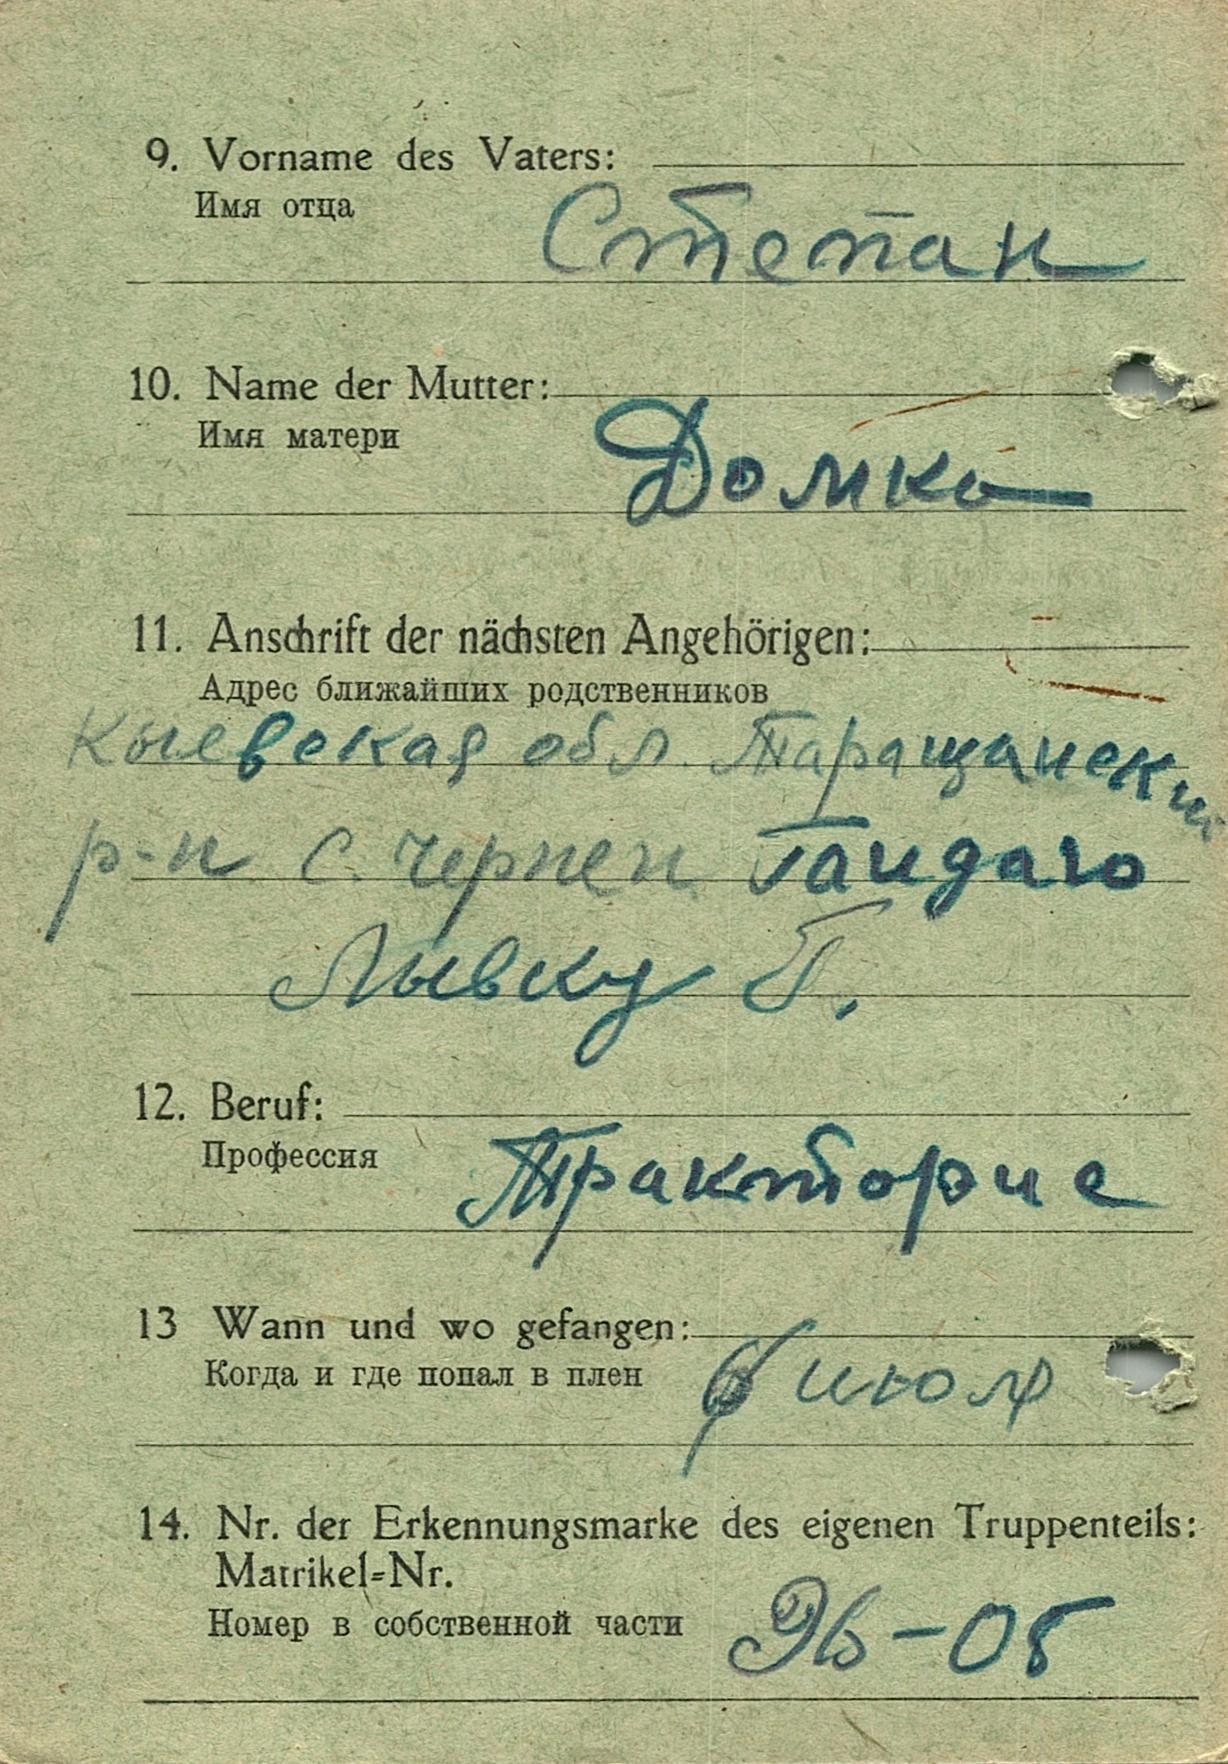 9. Vorname des Vaters:
Имя отца
Степан
10. Name der Mutter:
Имя матери
Домка
11. Anschrift der nächsten Angehörigen:
Адрес ближайших родственников
Кыевская обл. Таращанский
р-н с. Черпен Гайдаго
Лывку Г.
12. Beruf:
Профессия
Тракторис
13 Wann und wo gefangen:
Когда и где попал в плен
6 июля
14. Nr. der Erkennungsmarke des eigenen Truppenteils:
Matrikel-Nr.
Номер в собственной части